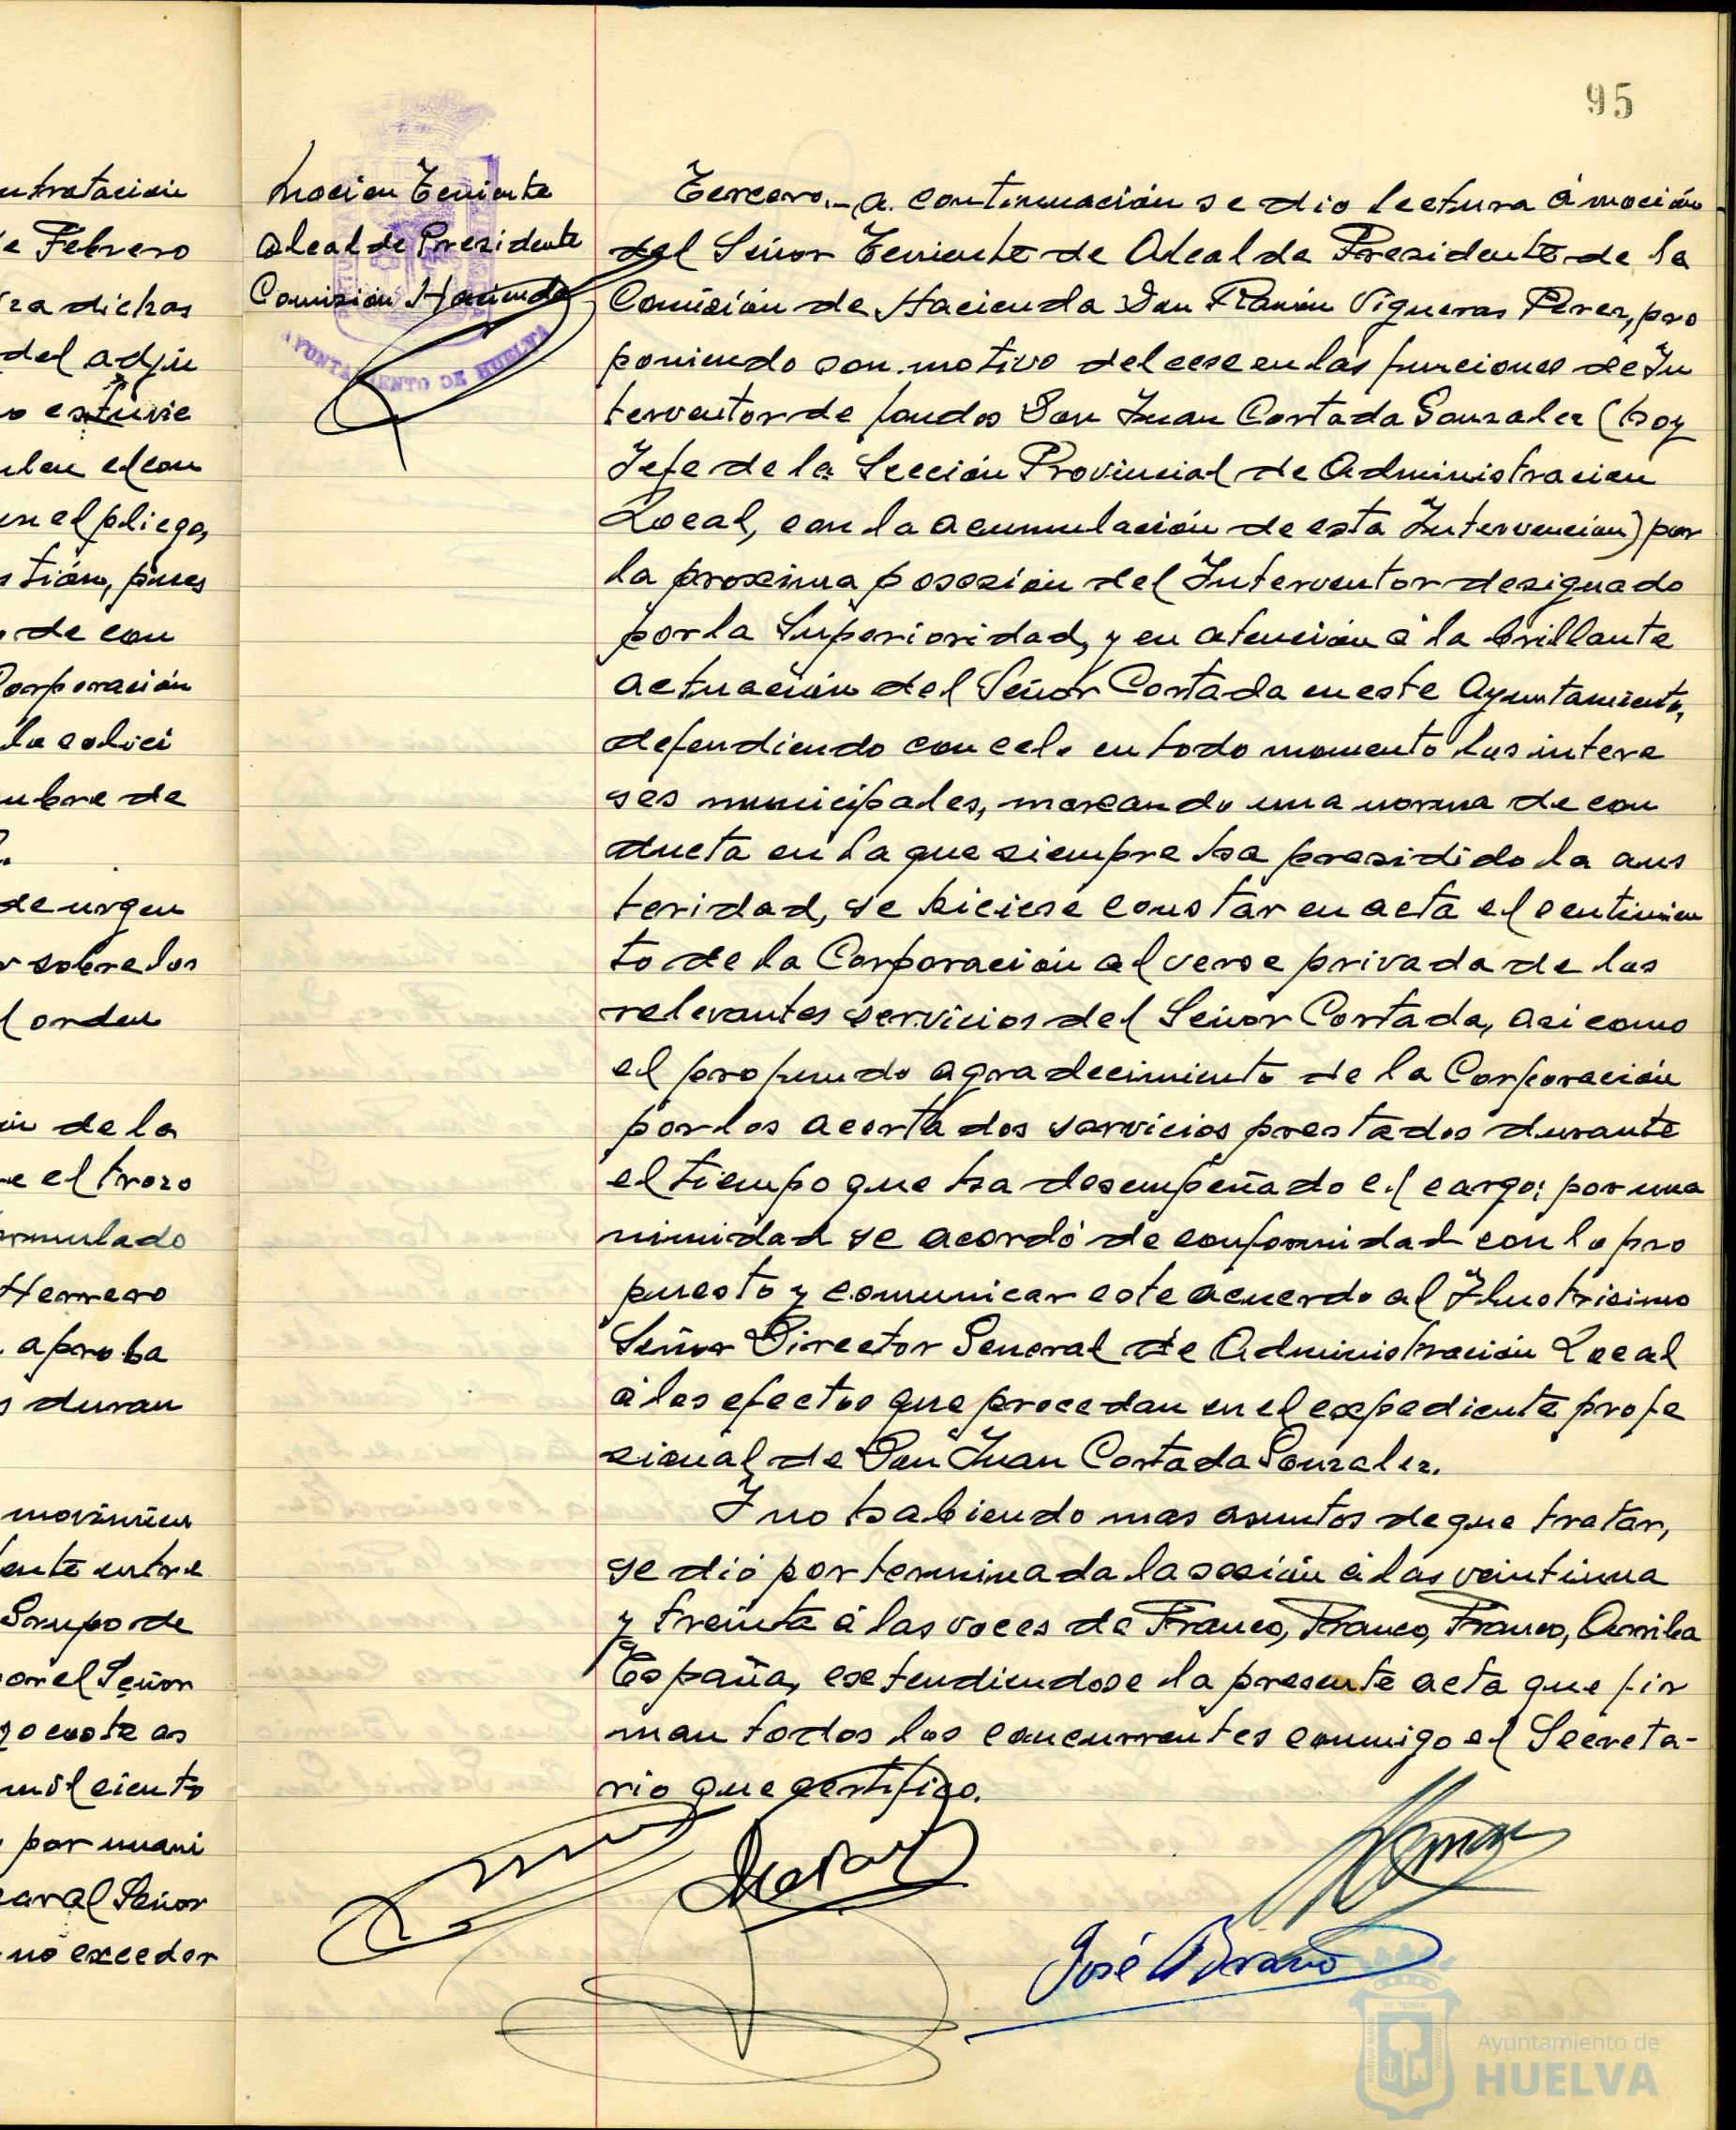 95
ntratación
e Febrero
ra dichas
del adju
o estuvie
ulen el con
en el pliego,
s tión, pues
de con
Corporación
la solici
mbre de
de urgen
r sobre los
l orden
in de la
e el trozo
ormulado
Herrero
aproba
s duran
movimien
ente entre
Grupo de
or el Señor
go coste as
mil ciento
por unani
ear al Señor
no exceder
Moción Teniente
Alcalde Presidente
Comisión Hacienda
AYUNTAMIENTO DE HUELVA
Tercero.- A continuación se dio lectura á moción
del Señor Teniente de Alcalde Presidente de la
Comisión de Hacienda Don Ramón Vigueras Perez, pro
poniendo con motivo del cese en las funciones de In
terventor de fondos Don Juan Cortada Gonzalez (hoy
Jefe de la Sección Provincial de Administración
Local, con la acumulación de esta Intervención) por
la proxima posesión del Interventor designado
por la Superioridad, y en atención á la brillante
actuación del Señor Cortada en este Ayuntamiento,
defendiendo con celo en todo momento los intere
ses municipales, marcando una norma de con
ducta en la que siempre ha presidido la aus
teridad, se hiciese constar en acta el sentimien
to de la Corporación al verse privada de los
relevantes servicios del Señor Cortada, asi como
el profundo agradecimiento de la Corporación
por los acertados servicios prestados durante
el tiempo que ha desempeñado el cargo; por una
nimidad se acordó de conformidad con lo pro
puesto y comunicar este acuerdo al Ilustrisimo
Señor Director General de Administración Local
á los efectos que procedan en el expediente profe
sional de Don Juan Cortada Gonzalez.
Y no habiendo mas asuntos de que tratar,
se dió por terminada la sesión á las veintiuna
y treinta á las voces de Franco, Franco, Franco, Arriba
España, extendiendose la presente acta que fir
man todos los concurrentes conmigo el Secreta-
rio que certifico.
José
Ayuntamiento de
HUELVA